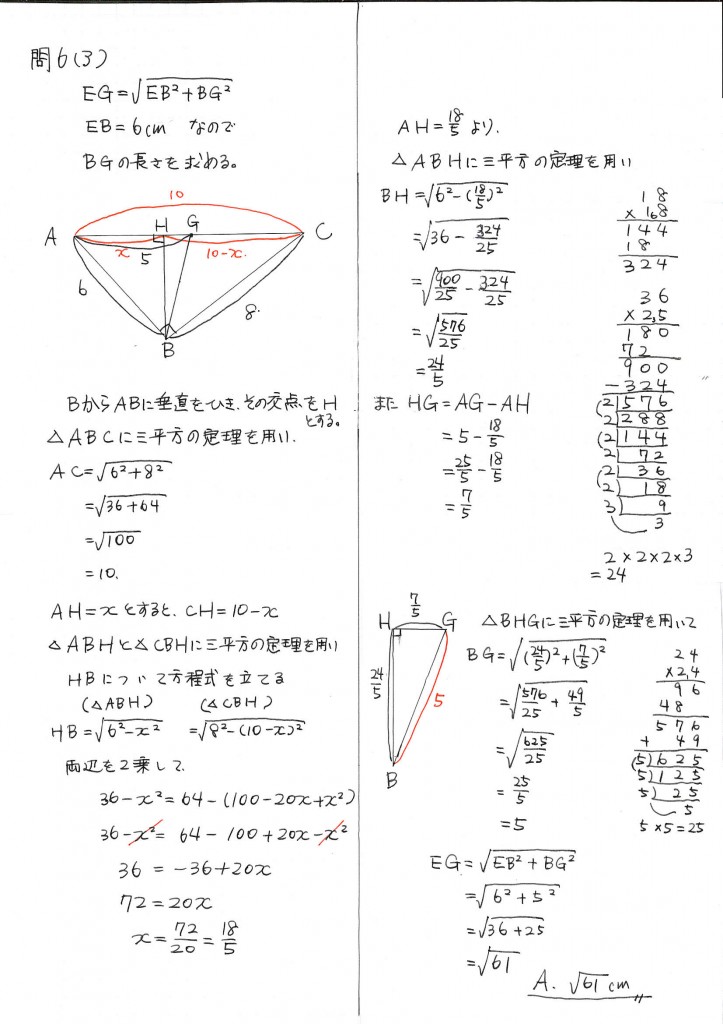 問6(3)
EG=√EB²+BG²
EB=6cm なので
BGの長さを求める。
10
A
H
G
C
x
5
10-x
6
8
B
BからABに垂直をひき、その交点をH
とする。
△ABCに三平方の定理を用い、
AC=√6²+8²
=√36+64
=√100
=10.
AH=xとすると、CH=10-x
△ABHと△CBHに三平方の定理を用い
HBについて方程式を立てる
(△ABH) (△CBH)
HB=√6²-x² =√8²-(10-x)²
両辺を2乗して、
36-x²=64-(100-20x+x²)
36-x²= 64-100+20x-x²
36 = -36+20x
72=20x
x=72/20=18/5
AH=18/5より、
△ABHに三平方の定理を用い
BH=√6²-(18/5)²
=√36-324/25
=√900/25-324/25
=√576/25
=24/5
また HG=AG-AH
=5-18/5
=25/5-18/5
=7/5
18
×18
144
18
324
36
×25
180
72
900
-324
2)576
2)288
2)144
2)72
2)36
2)18
3)9
3
2×2×2×3
=24
7/5
H
G
24/5
5
B
△BHGに三平方の定理を用いて
BG=√(24/5)²+(7/5)²
=√576/25+49/5
=√625/25
=25/5
=5
24
×24
96
48
576
+ 49
5)625
5)125
5)25
5
5×5=25
EG=√EB²+BG²
=√6²+5²
=√36+25
=√61
A. √61cm